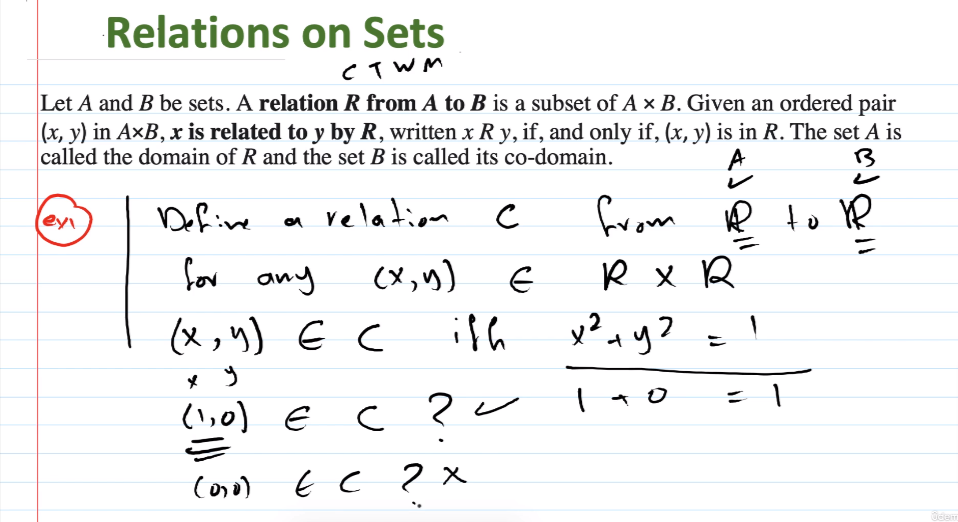 Relations on Sets
C T W M
Let A and B be sets. A relation R from A to B is a subset of A × B. Given an ordered pair
(x, y) in A×B, x is related to y by R, written x R y, if, and only if, (x, y) is in R. The set A is
called the domain of R and the set B is called its co-domain.
A B
ex1 Define a relation C from ℝ to ℝ
for any (x,y) ∈ ℝ × ℝ
(x,y) ∈ C iff x² + y² = 1
x y
(1,0) ∈ C ? ✓ 1 + 0 = 1
(0,0) ∈ C ? ×